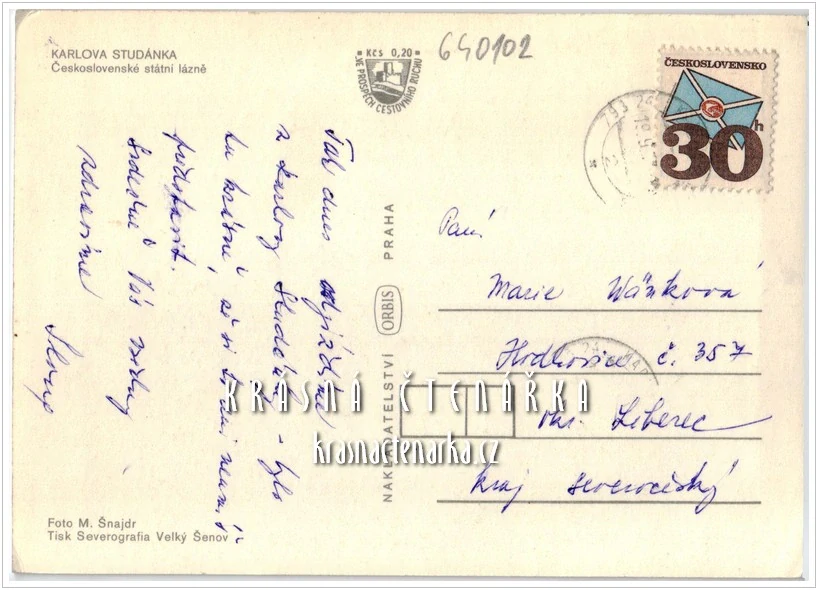 KARLOVA STUDÁNKA
Československé státní lázně
Kčs 0,20
VE PROSPĚCH CESTOVNÍHO RUCHU
640102
ČESKOSLOVENSKO
30 h
Tak dnes odjíždíme
z Karlovy Studánky - bylo
tu krásně, že si to ani neumíš
představit.
Srdečně Vás všechny
zdravíme
NAKLADATELSTVÍ ORBIS PRAHA
Paní
Marie Vaňková
Hodkovice č. 357
okr. Liberec
kraj severočeský
KRÁSNÁ ČTENÁŘKA
krasnactenarka.cz
Foto M. Šnajdr
Tisk Severografia Velký Šenov